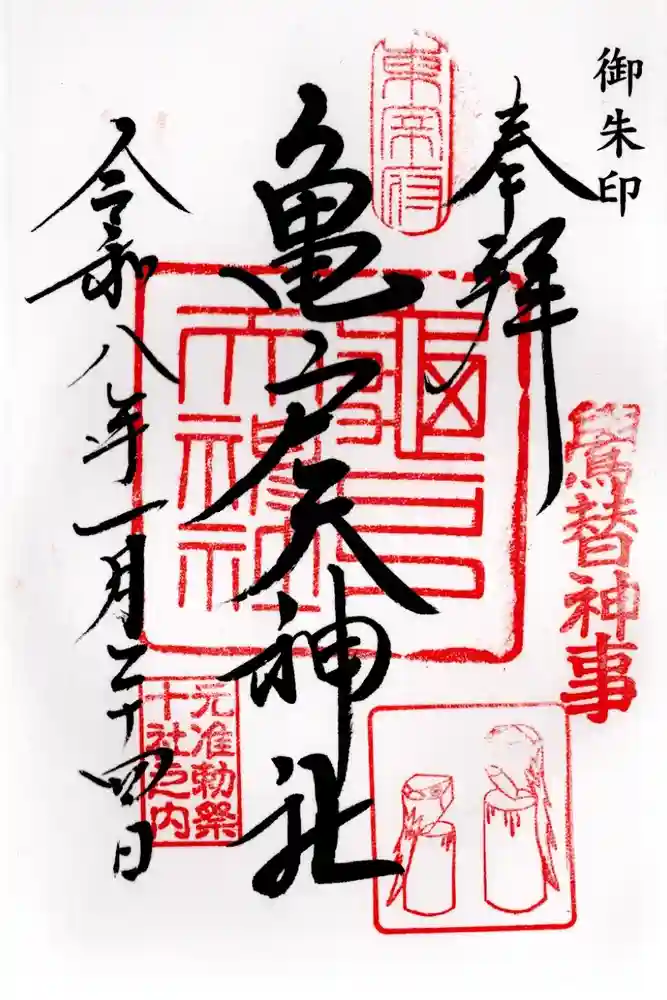 御朱印
奉拝
鷽替神事
東帝府
亀戸天神社
亀戸天神社
元准勅祭
十社之内
令和八年一月二十四日